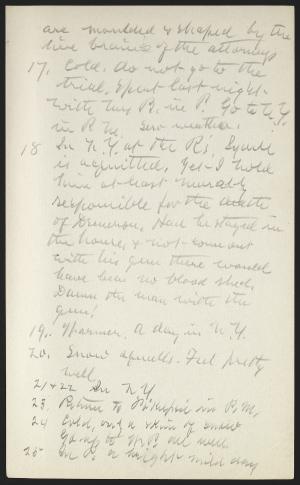 are moulded & shaped by the
live brains of the attorneys
17. Cold. do not go to the
trial. Spent last night
with Dr B. in P. Go to N.Y.
in P.M. Sour weather.
18 In N.Y. at the R's.
is acquitted. Yet I hold
him at least morally
responsible for the death
of Had he stayed in
the house & not come out
with his gun there would
have been no blood shed.
Damn the man with the
gun!
19. Warmer. A day in N.Y.
20. Snow squalls. Feel pretty
well.
21 & 22 In N.Y.
23. Return to Po'keepsie in P.M.
24 Cold, only a skim of snow
Go up to W.P. all well
25 In P. a bright mild day